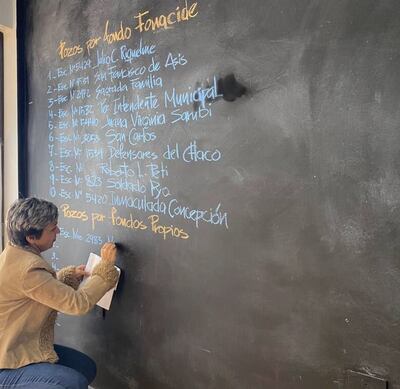 Pozos por fondo Fonacide
1- Esc Nº 5424 Julio C. Riquelme
2- Esc Nº San Francisco de Asis
3- Esc Nº Sagrada Familia
4- Esc Nº 1532 Intendente Municipal
5- Esc Nº Juana Virginia Sarubi
6- Esc Nº San Carlos
7- Esc Nº 1534 Defensores del Chaco
8- Esc Nº Roberto L. Peti
9- Esc Nº 823 Soldado Pyo
10 Esc Nº 5420 Inmaculada Concepción
Pozos por fondos Propios
Esc Nro 2483